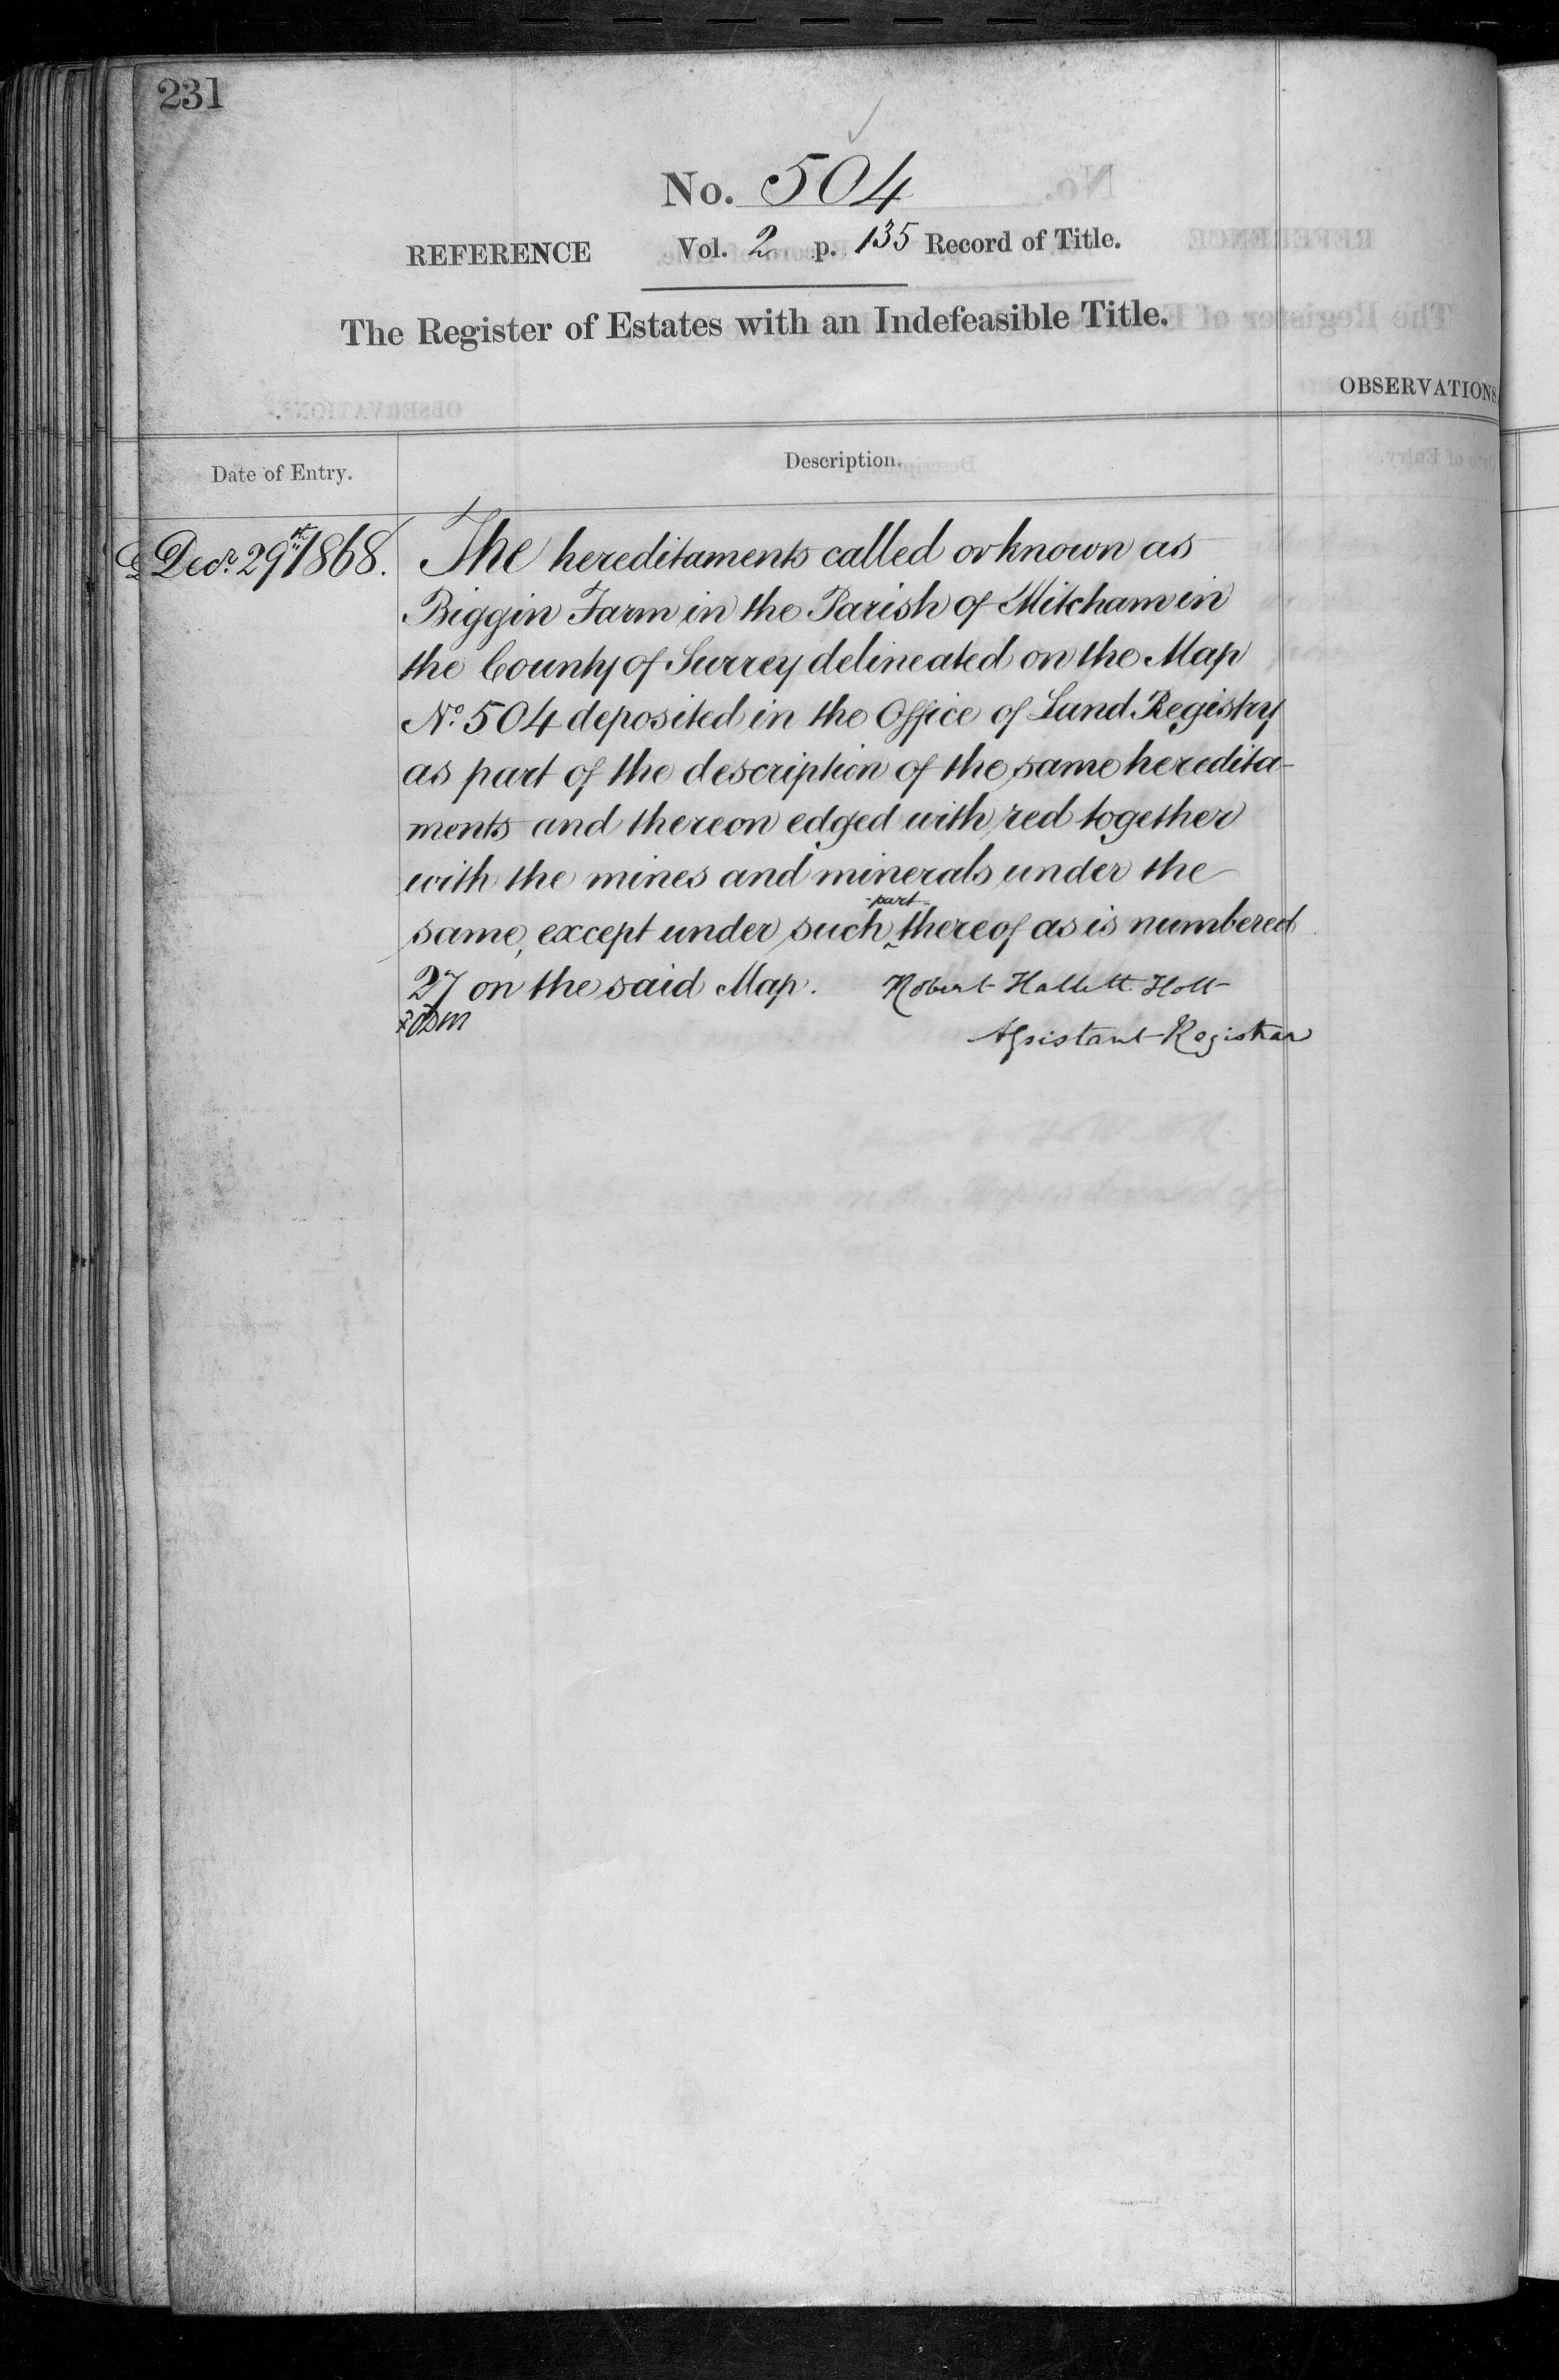 231
No. 504
REFERENCE Vol. 2 p. 135 Record of Title.
The Register of Estates with an Indefeasible Title.
OBSERVATIONS.
Date of Entry. Description.
Decr. 29th 1868. The hereditaments called or known as
Biggin Farm in the Parish of Mitcham in
the County of Surrey delineated on the Map
No. 504 deposited in the Office of Land Registry
as part of the description of the same heredita-
ments and thereon edged with red together
with the mines and minerals under the
same, except under such part thereof as is numbered
27 on the said Map. Robert Hallett Holt
Assistant Registrar